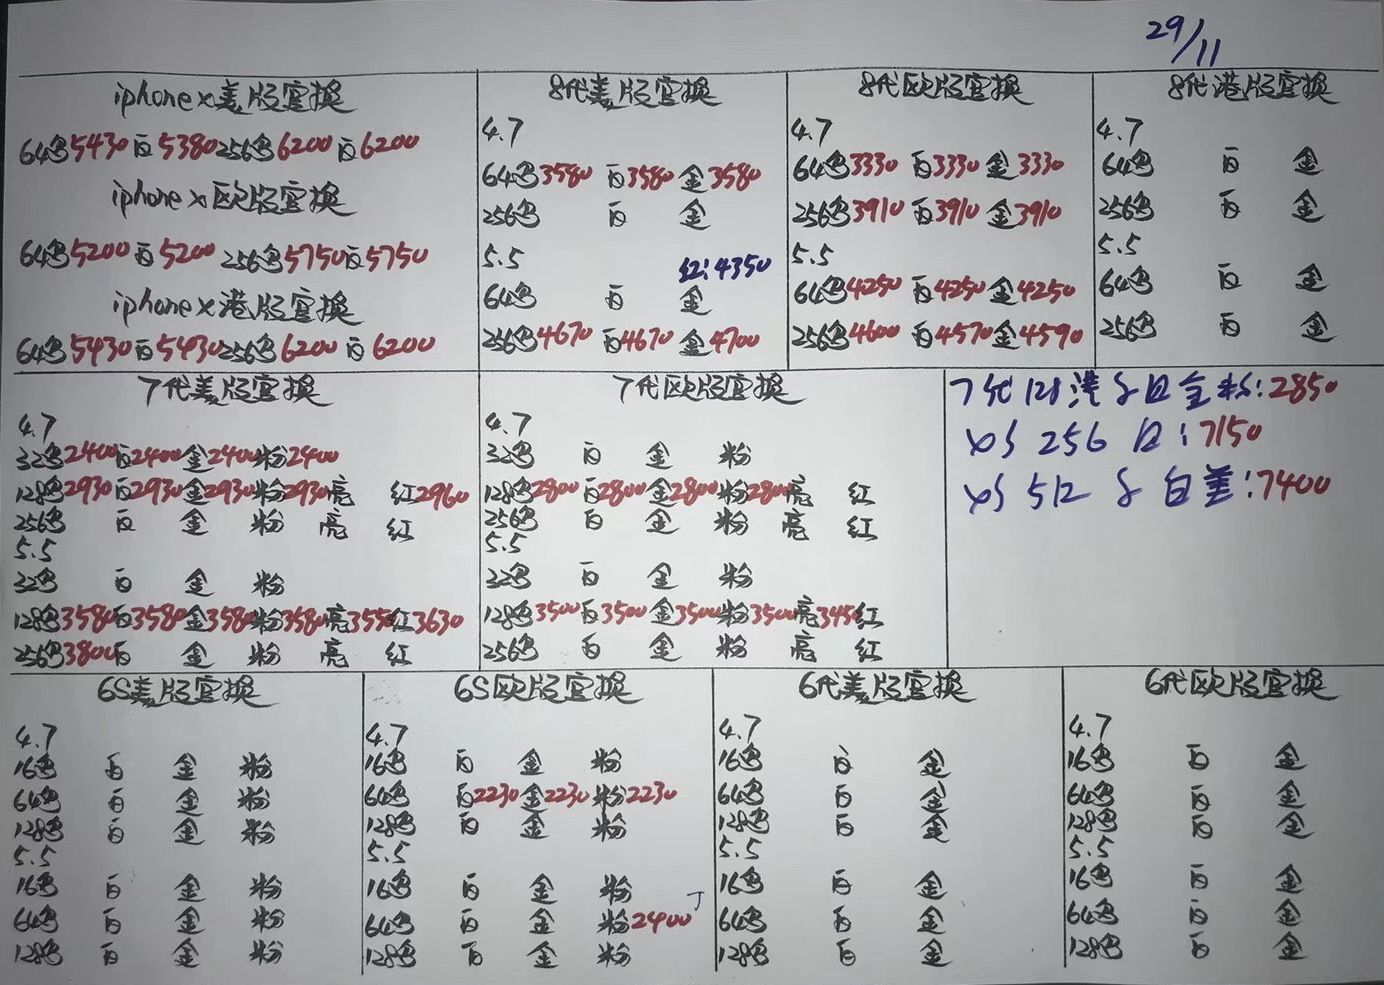 29/11
iphone x美版官换
64黑5430 白5380 256黑6200 白6200
iphone x欧版官换
64黑5200 白5200 256黑5750 白5750
iphone x港版官换
64黑5430 白5430 256黑6200 白6200
8代美版官换
4.7
64黑3580 白3580 金3580
256黑 白 金
5.5 红:4350
64黑 白 金
256黑4670 白4670 金4700
8代欧版官换
4.7
64黑3330 白3330 金3330
256黑3910 白3910 金3910
5.5
64黑4250 白4250 金4250
256黑4600 白4570 金4590
8代港版官换
4.7
64黑 白 金
256黑 白 金
5.5
64黑 白 金
256黑 白 金
7代美版官换
4.7
32黑2400 白2400 金2400 粉2400
128黑2930 白2930 金2930 粉2930 亮 红2960
256黑 白 金 粉 亮 红
5.5
32黑 白 金 粉
128黑3580 白3580 金3580 粉3580 亮3550 红3630
256黑3800 白 金 粉 亮 红
7代欧版官换
4.7
32黑 白 金 粉
128黑2800 白2800 金2800 粉2800 亮 红
256黑 白 金 粉 亮 红
5.5
32黑 白 金 粉
128黑3500 白3500 金3500 粉3500 亮3450 红
256黑 白 金 粉 亮 红
7代128港 白金粉:2850
XS 256 白:7150
XS 512 白美:7400
6S美版官换
4.7
16黑 白 金 粉
64黑 白 金 粉
128黑 白 金 粉
5.5
16黑 白 金 粉
64黑 白 金 粉
128黑 白 金 粉
6S欧版官换
4.7
16黑 白 金 粉
64黑 白2230 金2230 粉2230
128黑 白 金 粉
5.5
16黑 白 金 粉
64黑 白 金 粉2400
128黑 白 金 粉
6代美版官换
4.7
16黑 白 金
64黑 白 金
128黑 白 金
5.5
16黑 白 金
64黑 白 金
128黑 白 金
6代欧版官换
4.7
16黑 白 金
64黑 白 金
128黑 白 金
5.5
16黑 白 金
64黑 白 金
128黑 白 金